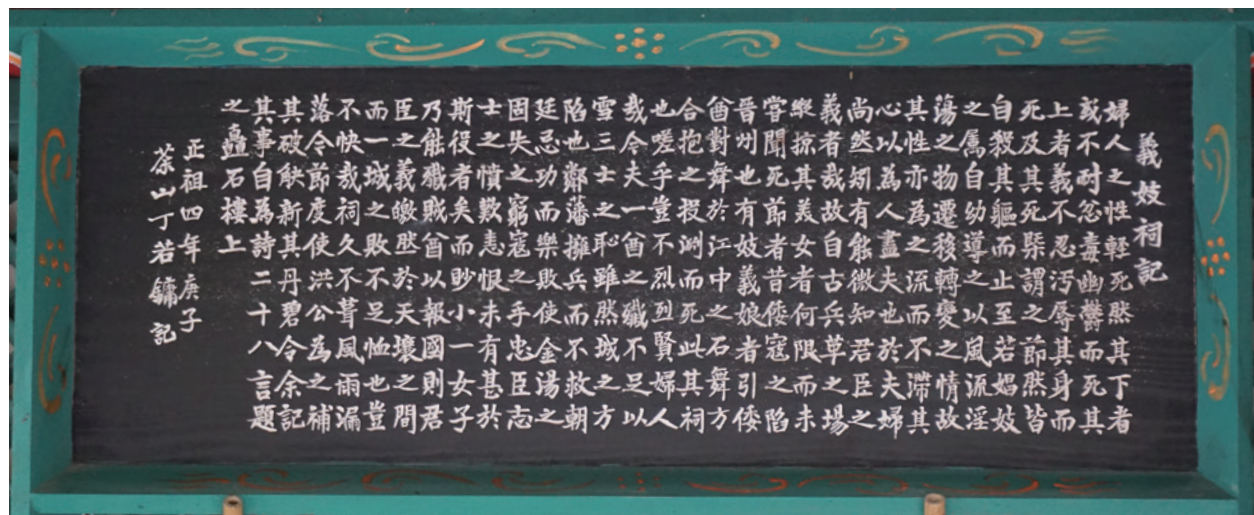 義妓祠記
婦人之性輕死然其下者
或不耐忿毒幽鬱而死其
上者義不忍汚辱其身而
死及其死槩謂之節然皆
自殺其軀而止至若娼妓
之属自幼導之以風流淫
蕩之物遷移轉變之情故
其性亦為之流而不滯其
心以為人盡夫也於夫婦
尚然矧有能微知君臣之
義者哉故自古兵革之場
樂掠其美女者何限而未
嘗聞死節者昔倭寇之陷
晉州也有妓義娘者引倭
酋對舞於江中之石舞方
合抱之投淵而死此其祠
也嗟乎豈不烈烈賢婦人
哉今夫一酋之殲不足以
雪三士之恥雖然城之方
陷也鄰藩擁兵而不救朝
廷忌功而樂敗使金湯之
固失之窮寇之手忠臣志
士之憤歎恚恨未有甚於
斯役者矣而眇小一女子
乃能殲賊酋以報國則君
臣之義皦然於天壤之間
而一城之敗不足恤也豈
不快哉祠久不葺風雨漏
落今節度使洪公為之補
其破觖新其丹碧令余記
其事自為詩二十八言題
之矗石樓上
正祖四年庚子
茶山丁若鏞記